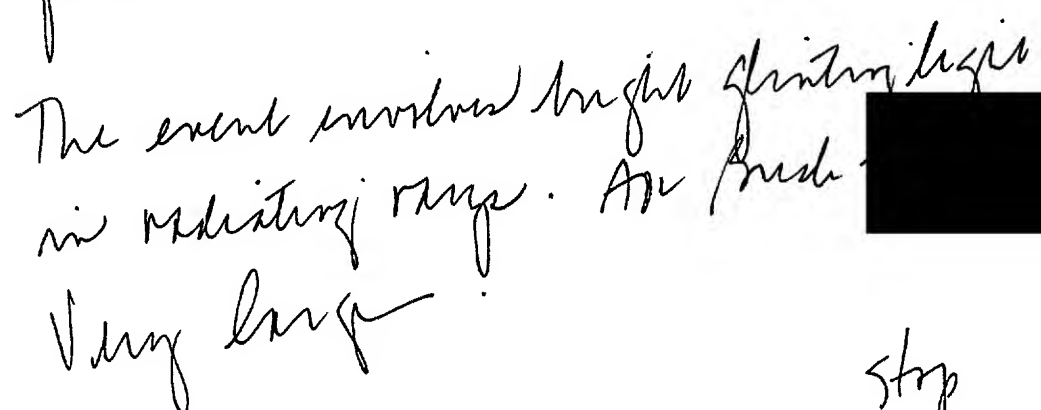 The event involves bright glinting light
in radiating rays. Air
Very large.
stop